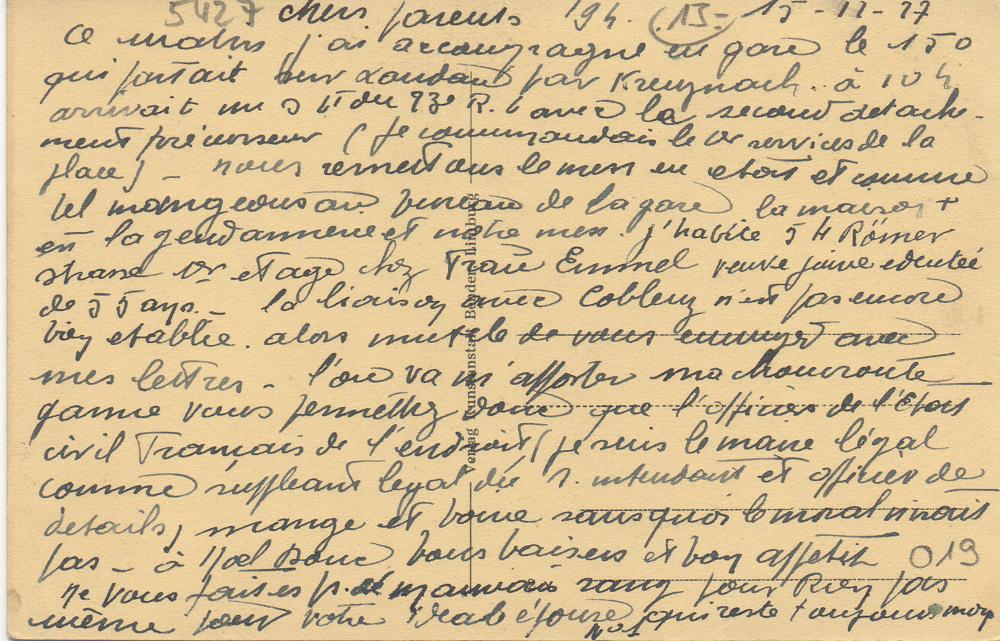 5427 chers parents 194. (13- 15-11-27
Ce matin j'ai accompagné en gare le 150
qui partait sur Landau par Kreuznach. à 10 h
arrivait un du 23e R. avec la second détache-
ment précurseur (je commandais le service de la
place) - nous remettons le mess en état et comme
tel mangeons au bureau de la gare la maison +
en la gendarmerie et notre mess. j'habite 54 Römer
strasse 1er etage chez Frau Emmel veuve juive edentée
de 55 ans. - la liaison avec Coblenz n'est pas encore
bien etablie. alors inutile de vous ennuyer avec
mes lettres - l'on va m'apporter ma choucroute
garnie vous permettez donc que l'officier de l'Etat
civil Francais de l'endroit (je suis le maire légal
comme suppleant legal du S. intendant et officier de
details) mange et boive sans quoi le moral n'irait
pas - à Noel Donc bons baisers et bon appetit
ne vous faites pas mauvais sang pour Roy pas
même pour votre qui reste toujours mon
019
Verlag Kunstanstalt Benders Limburg